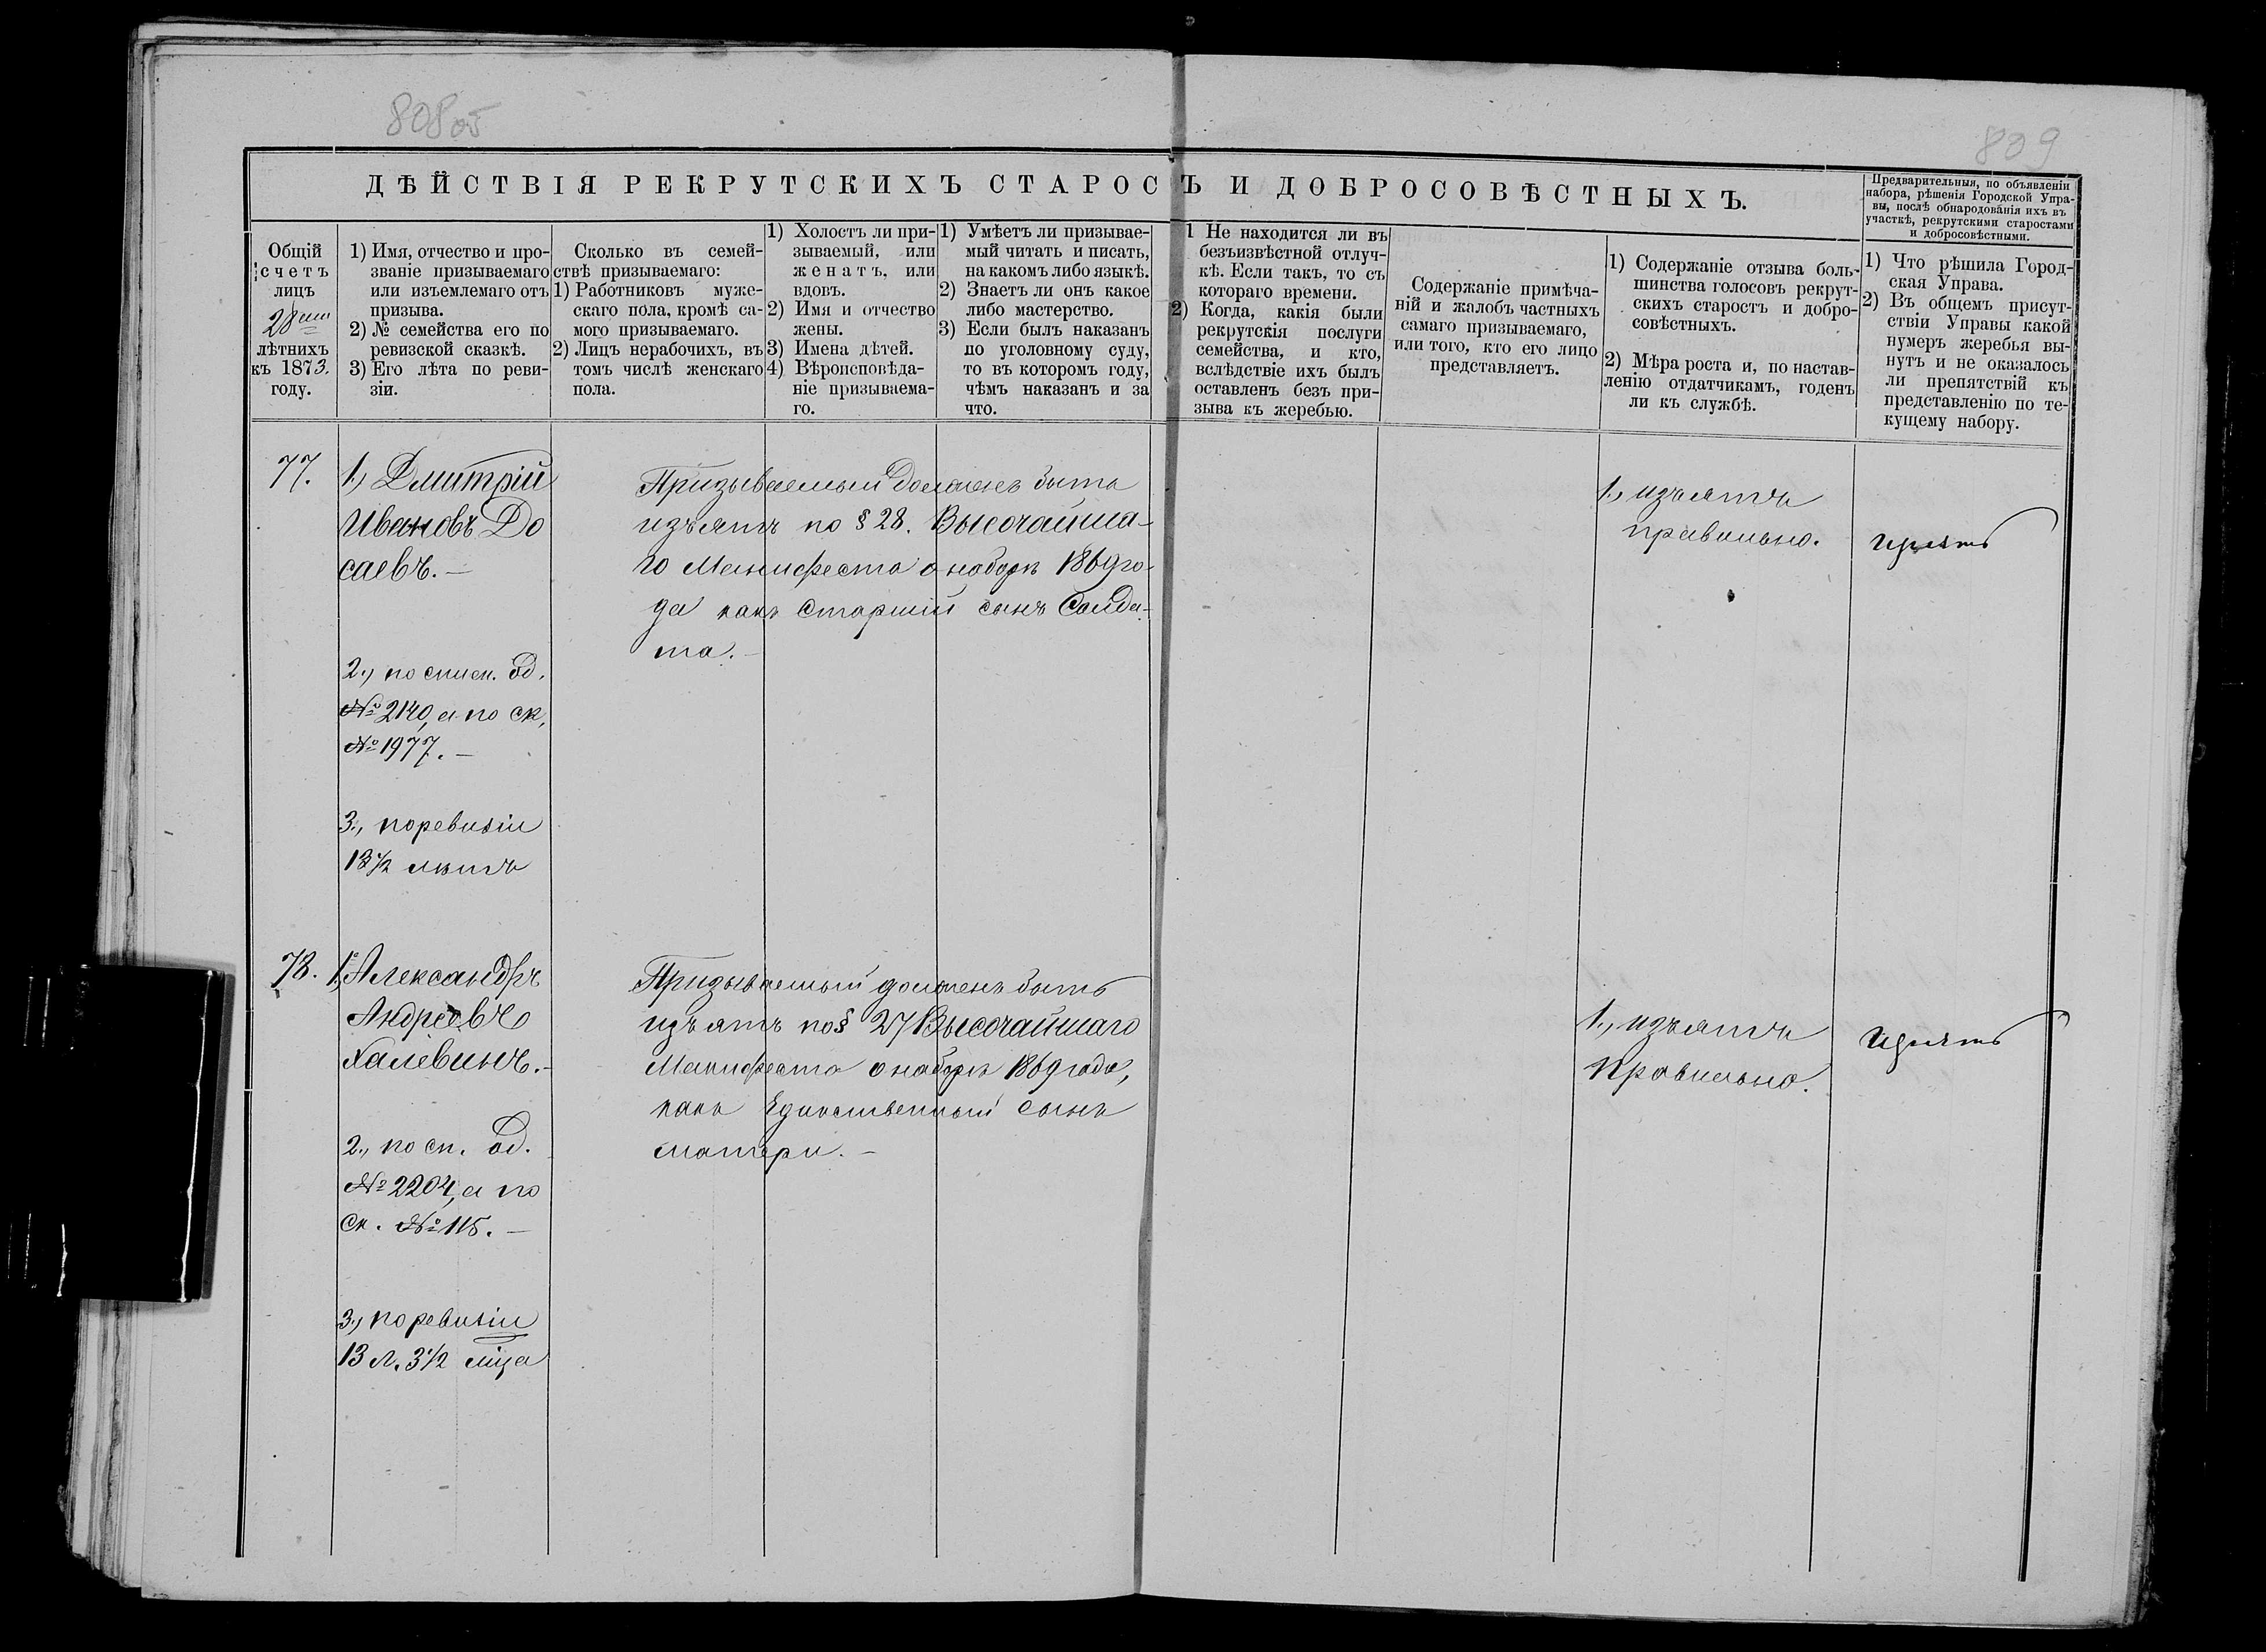 808об
809
ДѢЙСТВІЯ РЕКРУТСКИХЪ СТАРОСТЪ И ДОБРОСОВѢСТНЫХЪ.
Предварительныя, по объявленіи
набора, рѣшенія Городской Упра-
вы, послѣ обнародованія ихъ въ
участкѣ, рекрутскими старостами
и добросовѣстными.
Общій
счетъ
лицъ
28ми
лѣтнихъ
къ 1873.
году.
1) Имя, отчество и про-
званіе призываемаго
или изъемлемаго отъ
призыва.
2) № семейства его по
ревизской сказкѣ.
3) Его лѣта по реви-
зіи.
Сколько въ семей-
ствѣ призываемаго:
1) Работниковъ муже-
скаго пола, кромѣ са-
мого призываемаго.
2) Лицъ нерабочихъ, въ
томъ числѣ женскаго
пола.
1) Холостъ ли при-
зываемый, или
женатъ, или
вдовъ.
2) Имя и отчество
жены.
3) Имена дѣтей.
4) Вѣроисповѣда-
ніе призываема-
го.
1) Умѣетъ ли призывае-
мый читать и писать,
на какомъ либо языкѣ.
2) Знаетъ ли онъ какое
либо мастерство.
3) Если былъ наказанъ
по уголовному суду,
то въ которомъ году,
чѣмъ наказанъ и за
что.
1 Не находится ли въ
безъизвѣстной отлуч-
кѣ. Если такъ, то съ
котораго времени.
2) Когда, какія были
рекрутскія послуги
семейства, и кто,
вслѣдствіе ихъ былъ
оставленъ безъ при-
зыва къ жеребью.
Содержаніе примѣча-
ній и жалобъ частныхъ
самаго призываемаго,
или того, кто его лицо
представляетъ.
1) Содержаніе отзыва боль-
шинства голосовъ рекрут-
скихъ старостъ и добро-
совѣстныхъ.
2) Мѣра роста и, по настав-
ленію отдатчикамъ, годенъ
ли къ службѣ.
1) Что рѣшила Город-
ская Управа.
2) Въ общемъ присут-
ствіи Управы какой
нумеръ жеребья вы-
нутъ и не оказалось
ли препятствій къ
представленію по те-
кущему набору.
77.
1., Дмитрій
Ивановъ До
саевъ.—
2., по списк. од.
№ 2140, а по ск.
№ 1977.—
3., по ревизіи
13½ лѣтъ
Призываемый долженъ быть
изъятъ по § 28. Высочайша-
го Манифеста о наборѣ 1869 го-
да какъ старшій сынъ Солда-
та.—
1., изъятъ
правильно.
Изъятъ
78.
1., Александръ
Андреевъ
Халевинъ.—
2., по сп. од.
№ 2204, а по
ск. № 115.—
3., по ревизіи
13 л. 3½ мѣца
Призываемый долженъ быть
изъятъ по § 27 Высочайшаго
Манифеста о наборѣ 1869 года,
какъ Единственный сынъ
матери.—
1., изъятъ
правильно.
Изъятъ